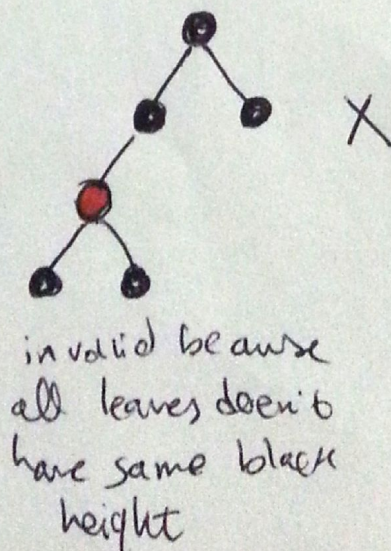 invalid because
all leaves doesn't
have same black
height